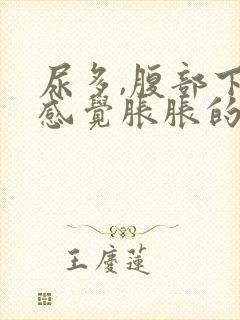 尿多,腹部下
感覺脹脹的
王慶蓮